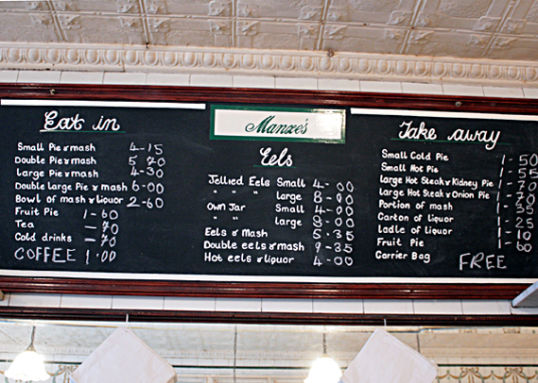 Eat in
Small Pie & mash 4-15
Double Pie & mash
Large Pie & mash 4-30
Double large Pie & mash 6-00
Bowl of mash & liquor 2-60
Fruit Pie 1-60
Tea -70
Cold drinks -70
COFFEE 1.00
Manze's
Eels
Jellied Eels Small 4-00
" " " large 8-00
Own Jar Small 4-00
" " large 8-00
Eels & Mash 5-35
Double eels & mash 9-35
Hot eels & liquor 4-00
Take away
Small Cold Pie 1-50
Small Hot Pie 1-55
large Hot Steak & Kidney Pie 1-70
large Hot Steak & Onion Pie 1-70
Portion of mash
Carton of liquor
Ladle of liquor 1-10
Fruit Pie 1-60
Carrier Bag FREE